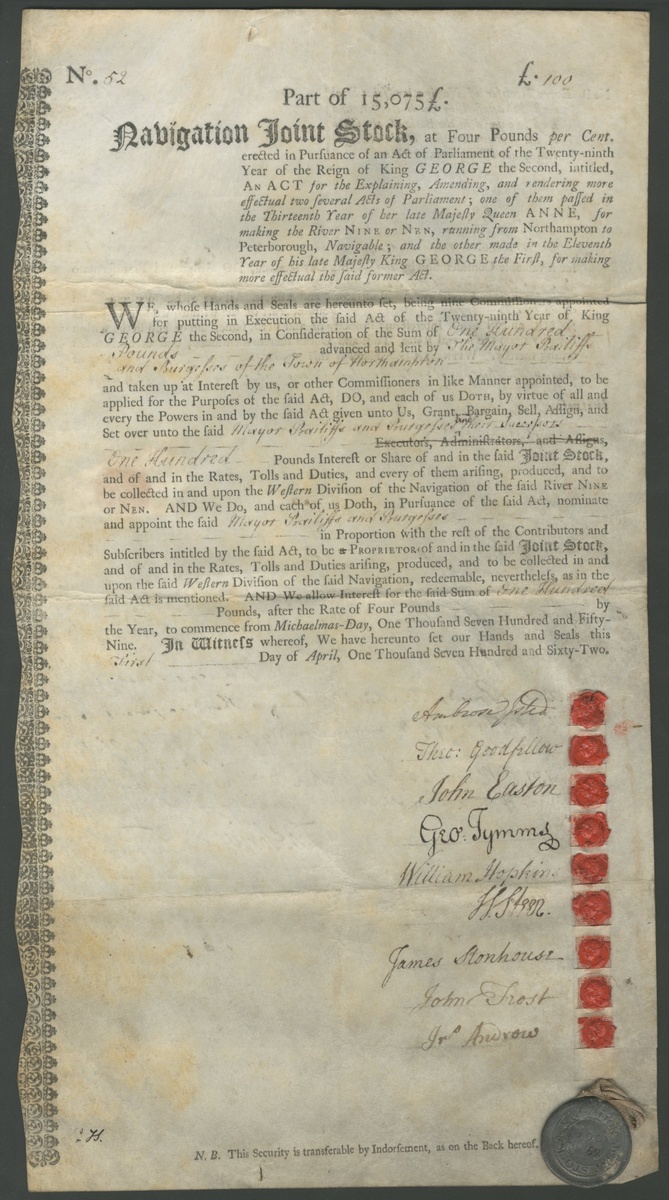 No. 52 £. 100
Part of 15,075£.
Navigation Joint Stock, at Four Pounds per Cent.
erected in Pursuance of an Act of Parliament of the Twenty-ninth
Year of the Reign of King GEORGE the Second, intitled,
AN ACT for the Explaining, Amending, and rendering more
effectual two several Acts of Parliament; one of them passed in
the Thirteenth Year of her late Majesty Queen ANNE, for
making the River NINE or NEN, running from Northampton to
Peterborough, Navigable; and the other made in the Eleventh
Year of his late Majesty King GEORGE the First, for making
more effectual the said former Act.
WE, whose Hands and Seals are hereunto set, being nine Commissioners appointed
for putting in Execution the said Act of the Twenty-ninth Year of King
GEORGE the Second, in Consideration of the Sum of One Hundred
Pounds advanced and lent by The Mayor Bailiffs
and Burgesses of the Town of Northampton
and taken up at Interest by us, or other Commissioners in like Manner appointed, to be
applied for the Purposes of the said Act, DO, and each of us DOTH, by virtue of all and
every the Powers in and by the said Act given unto Us, Grant, Bargain, Sell, Assign, and
Set over unto the said Mayor Bailiffs and Burgesses and their Successors
Executors, Administrators, and Assigns,
One Hundred Pounds Interest or Share of and in the said Joint Stock,
and of and in the Rates, Tolls and Duties, and every of them arising, produced, and to
be collected in and upon the Western Division of the Navigation of the said River NINE
or NEN. AND We Do, and each of us Doth, in Pursuance of the said Act, nominate
and appoint the said Mayor Bailiffs and Burgesses
in Proportion with the rest of the Contributors and
Subscribers intitled by the said Act, to be a PROPRIETOR of and in the said Joint Stock,
and of and in the Rates, Tolls and Duties arising, produced, and to be collected in and
upon the said Western Division of the said Navigation, redeemable, nevertheless, as in the
said Act is mentioned. AND We allow Interest for the said Sum of One Hundred
Pounds, after the Rate of Four Pounds by
the Year, to commence from Michaelmas-Day, One Thousand Seven Hundred and Fifty-
Nine. In Witness whereof, We have hereunto set our Hands and Seals this
First Day of April, One Thousand Seven Hundred and Sixty-Two.
Ambrose Isted
Theo: Goodfellow
John Easton
Geo. Tymms
William Hopkins
James Stonhouse
John Frost
Jno Andrew
N. B. This Security is transferable by Indorsement, as on the Back hereof.